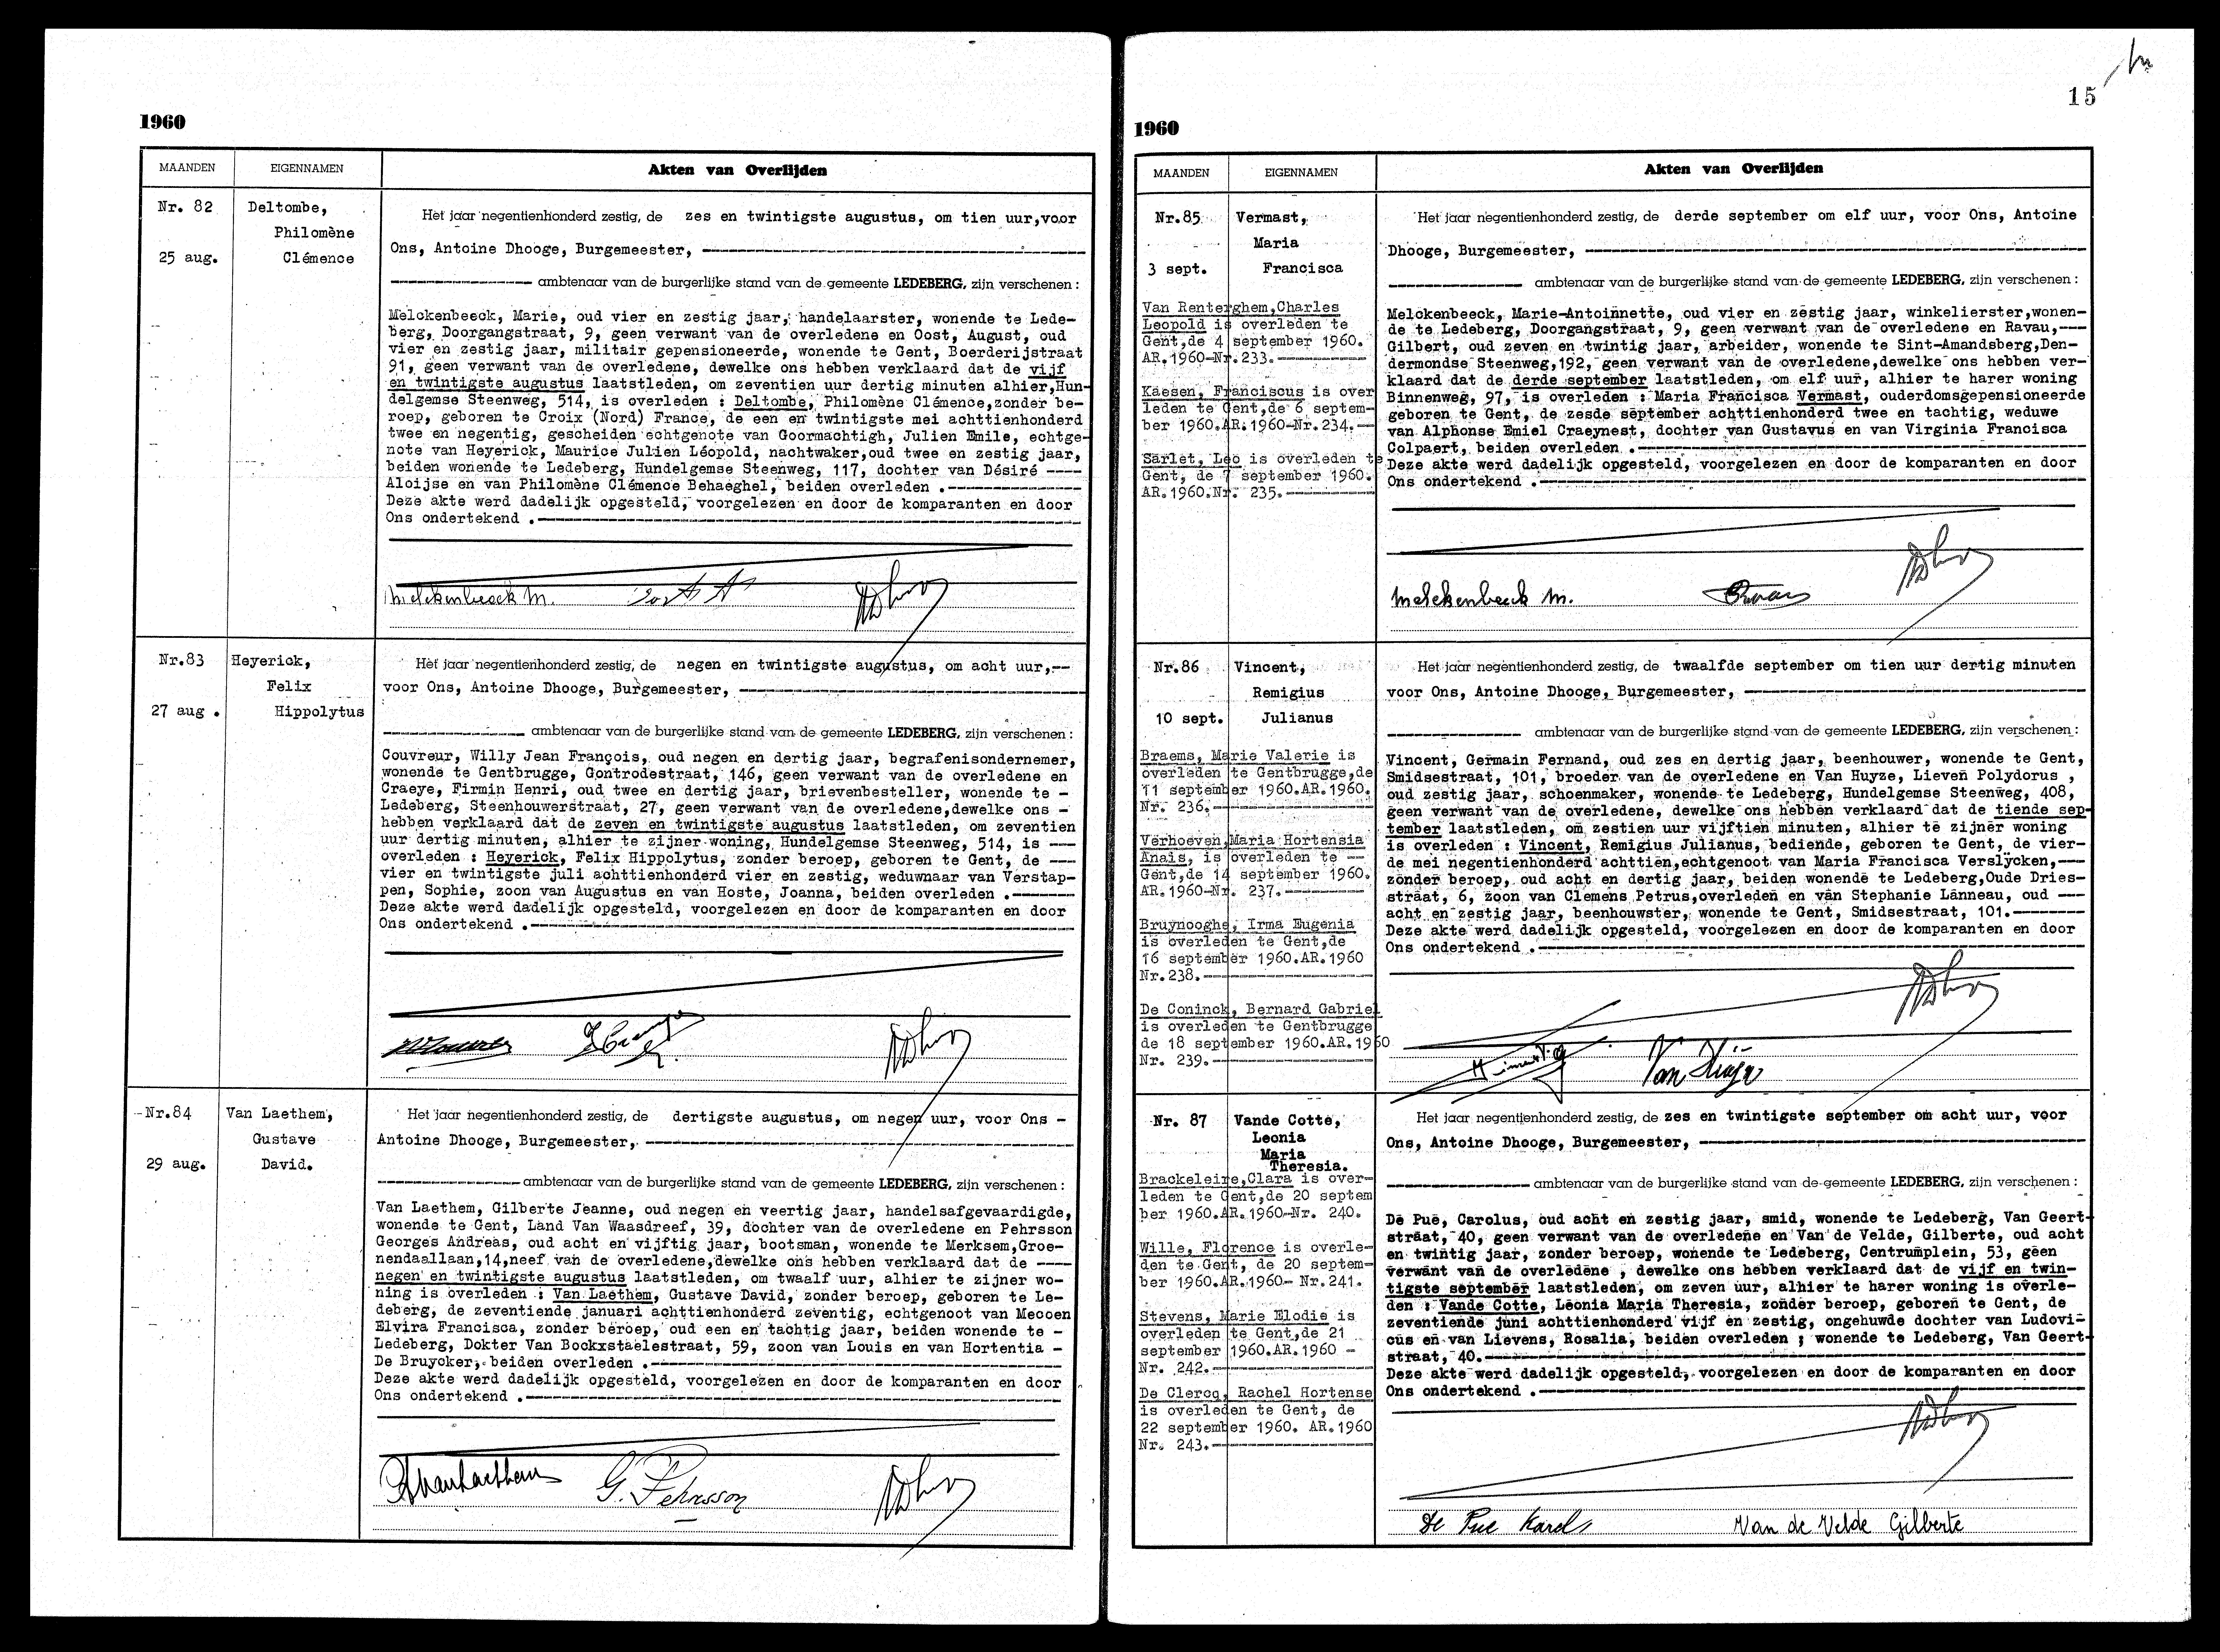 1960
MAANDEN
EIGENNAMEN
Akten van Overlijden
Nr. 82
25 aug.
Deltombe,
Philomène
Clémence
Het jaar negentienhonderd zestig, de zes en twintigste augustus, om tien uur,voor
Ons, Antoine Dhooge, Burgemeester,
ambtenaar van de burgerlijke stand van de gemeente LEDEBERG, zijn verschenen :
Melckenbeeck, Marie, oud vier en zestig jaar, handelaarster, wonende te Lede-
berg, Doorgangstraat, 9, geen verwant van de overledene en Oost, August, oud
vier en zestig jaar, militair gepensioneerde, wonende te Gent, Boerderijstraat
91, geen verwant van de overledene, dewelke ons hebben verklaard dat de vijf
en twintigste augustus laatstleden, om zeventien uur dertig minuten alhier,Hun-
delgemse Steenweg, 514, is overleden : Deltombe, Philomène Clémence,zonder be-
roep, geboren te Croix (Nord) France, de een en twintigste mei achttienhonderd
twee en negentig, gescheiden echtgenote van Goormachtigh, Julien Emile, echtge-
note van Heyerick, Maurice Julien Léopold, nachtwaker,oud twee en zestig jaar,
beiden wonende te Ledeberg, Hundelgemse Steenweg, 117, dochter van Désiré ----
Aloijse en van Philomène Clémence Behaeghel, beiden overleden .
Deze akte werd dadelijk opgesteld, voorgelezen en door de komparanten en door
Ons ondertekend .
Melckenbeeck M.
Nr.83
27 aug .
Heyerick,
Felix
Hippolytus
Het jaar negentienhonderd zestig, de negen en twintigste augustus, om acht uur,--
voor Ons, Antoine Dhooge, Burgemeester,
ambtenaar van de burgerlijke stand van de gemeente LEDEBERG, zijn verschenen :
Couvreur, Willy Jean François, oud negen en dertig jaar, begrafenisondernemer,
wonende te Gentbrugge, Gontrodestraat, 146, geen verwant van de overledene en
Craeye, Firmin Henri, oud twee en dertig jaar, brievenbesteller, wonende te -
Ledeberg, Steenhouwerstraat, 27, geen verwant van de overledene,dewelke ons -
hebben verklaard dat de zeven en twintigste augustus laatstleden, om zeventien
uur dertig minuten, alhier te zijner woning, Hundelgemse Steenweg, 514, is ---
overleden : Heyerick, Felix Hippolytus, zonder beroep, geboren te Gent, de ---
vier en twintigste juli achttienhonderd vier en zestig, weduwnaar van Verstap-
pen, Sophie, zoon van Augustus en van Hoste, Joanna, beiden overleden .
Deze akte werd dadelijk opgesteld, voorgelezen en door de komparanten en door
Ons ondertekend .
Nr.84
29 aug.
Van Laethem,
Gustave
David.
Het jaar negentienhonderd zestig, de dertigste augustus, om negen uur, voor Ons -
Antoine Dhooge, Burgemeester,
ambtenaar van de burgerlijke stand van de gemeente LEDEBERG, zijn verschenen :
Van Laethem, Gilberte Jeanne, oud negen en veertig jaar, handelsafgevaardigde,
wonende te Gent, Land Van Waasdreef, 39, dochter van de overledene en Pehrsson
Georges Andreas, oud acht en vijftig jaar, bootsman, wonende te Merksem,Groe-
nendaallaan,14,neef van de overledene,dewelke ons hebben verklaard dat de ----
negen en twintigste augustus laatstleden, om twaalf uur, alhier te zijner wo-
ning is overleden : Van Laethem, Gustave David, zonder beroep, geboren te Le-
deberg, de zeventiende januari achttienhonderd zeventig, echtgenoot van Mecoen
Elvira Francisca, zonder beroep, oud een en tachtig jaar, beiden wonende te -
Ledeberg, Dokter Van Bockxstaelestraat, 59, zoon van Louis en van Hortentia -
De Bruycker, beiden overleden .
Deze akte werd dadelijk opgesteld, voorgelezen en door de komparanten en door
Ons ondertekend .
G. Pehrsson
15
1960
MAANDEN
EIGENNAMEN
Akten van Overlijden
Nr.85
3 sept.
Vermast,
Maria
Francisca
Van Renterghem,Charles
Leopold is overleden te
Gent,de 4 september 1960.
AR.1960-Nr.233.
Kaesen, Franciscus is over
leden te Gent,de 6 septem-
ber 1960.AR.1960-Nr.234.
Sarlet, Leo is overleden te
Gent, de 7 september 1960.
AR.1960.Nr. 235.
Het jaar negentienhonderd zestig, de derde september om elf uur, voor Ons, Antoine
Dhooge, Burgemeester,
ambtenaar van de burgerlijke stand van de gemeente LEDEBERG, zijn verschenen :
Melckenbeeck, Marie-Antoinnette, oud vier en zestig jaar, winkelierster,wonen-
de te Ledeberg, Doorgangstraat, 9, geen verwant van de overledene en Ravau,---
Gilbert, oud zeven en twintig jaar, arbeider, wonende te Sint-Amandsberg,Den-
dermondse Steenweg,192, geen verwant van de overledene,dewelke ons hebben ver-
klaard dat de derde september laatstleden, om elf uur, alhier te harer woning
Binnenweg, 97, is overleden : Maria Francisca Vermast, ouderdomsgepensioneerde
geboren te Gent, de zesde september achttienhonderd twee en tachtig, weduwe
van Alphonse Emiel Craeynest, dochter van Gustavus en van Virginia Francisca
Colpaert, beiden overleden .
Deze akte werd dadelijk opgesteld, voorgelezen en door de komparanten en door
Ons ondertekend .
Melckenbeeck M.
Nr.86
10 sept.
Vincent,
Remigius
Julianus
Braems, Marie Valerie is
overleden te Gentbrugge,de
11 september 1960.AR.1960.
Nr. 236.
Verhoeven,Maria Hortensia
Anaïs, is overleden te --
Gent,de 14 september 1960.
AR.1960-Nr. 237.
Bruynooghe, Irma Eugenia
is overleden te Gent,de
16 september 1960.AR.1960
Nr.238.
De Coninck, Bernard Gabriel
is overleden te Gentbrugge
de 18 september 1960.AR.1960
Nr. 239.
Het jaar negentienhonderd zestig, de twaalfde september om tien uur dertig minuten
voor Ons, Antoine Dhooge, Burgemeester,
ambtenaar van de burgerlijke stand van de gemeente LEDEBERG, zijn verschenen :
Vincent, Germain Fernand, oud zes en dertig jaar, beenhouwer, wonende te Gent,
Smidsestraat, 101, broeder van de overledene en Van Huyze, Lieven Polydorus ,
oud zestig jaar, schoenmaker, wonende te Ledeberg, Hundelgemse Steenweg, 408,
geen verwant van de overledene, dewelke ons hebben verklaard dat de tiende sep-
tember laatstleden, om zestien uur vijftien minuten, alhier te zijner woning
is overleden : Vincent, Remigius Julianus, bediende, geboren te Gent, de vier-
de mei negentienhonderd achttien,echtgenoot van Maria Francisca Verslycken,---
zonder beroep, oud acht en dertig jaar, beiden wonende te Ledeberg,Oude Dries-
straat, 6, zoon van Clemens Petrus,overleden en van Stephanie Lanneau, oud ---
acht en zestig jaar, beenhouwster, wonende te Gent, Smidsestraat, 101.
Deze akte werd dadelijk opgesteld, voorgelezen en door de komparanten en door
Ons ondertekend .
Nr. 87
Vande Cotte,
Leonia
Maria
Theresia.
Brackeleire,Clara is over-
leden te Gent,de 20 septem
ber 1960.AR.1960-Nr. 240.
Wille, Florence is overle-
den te Gent, de 20 septem-
ber 1960.AR.1960- Nr.241.
Stevens, Marie Elodie is
overleden te Gent,de 21
september 1960.AR.1960 -
Nr. 242.
De Clercq, Rachel Hortense
is overleden te Gent, de
22 september 1960. AR.1960
Nr. 243.
Het jaar negentienhonderd zestig, de zes en twintigste september om acht uur, voor
Ons, Antoine Dhooge, Burgemeester,
ambtenaar van de burgerlijke stand van de gemeente LEDEBERG, zijn verschenen :
De Pue, Carolus, oud acht en zestig jaar, smid, wonende te Ledeberg, Van Geert-
straat, 40, geen verwant van de overledene en Van de Velde, Gilberte, oud acht
en twintig jaar, zonder beroep, wonende te Ledeberg, Centrumplein, 53, geen
verwant van de overledene , dewelke ons hebben verklaard dat de vijf en twin-
tigste september laatstleden, om zeven uur, alhier te harer woning is overle-
den : Vande Cotte, Leonia Maria Theresia, zonder beroep, geboren te Gent, de
zeventiende juni achttienhonderd vijf en zestig, ongehuwde dochter van Ludovi-
cus en van Lievens, Rosalia, beiden overleden ; wonende te Ledeberg, Van Geert-
straat, 40.
Deze akte werd dadelijk opgesteld, voorgelezen en door de komparanten en door
Ons ondertekend .
De Pue Karel
Van de Velde Gilberte